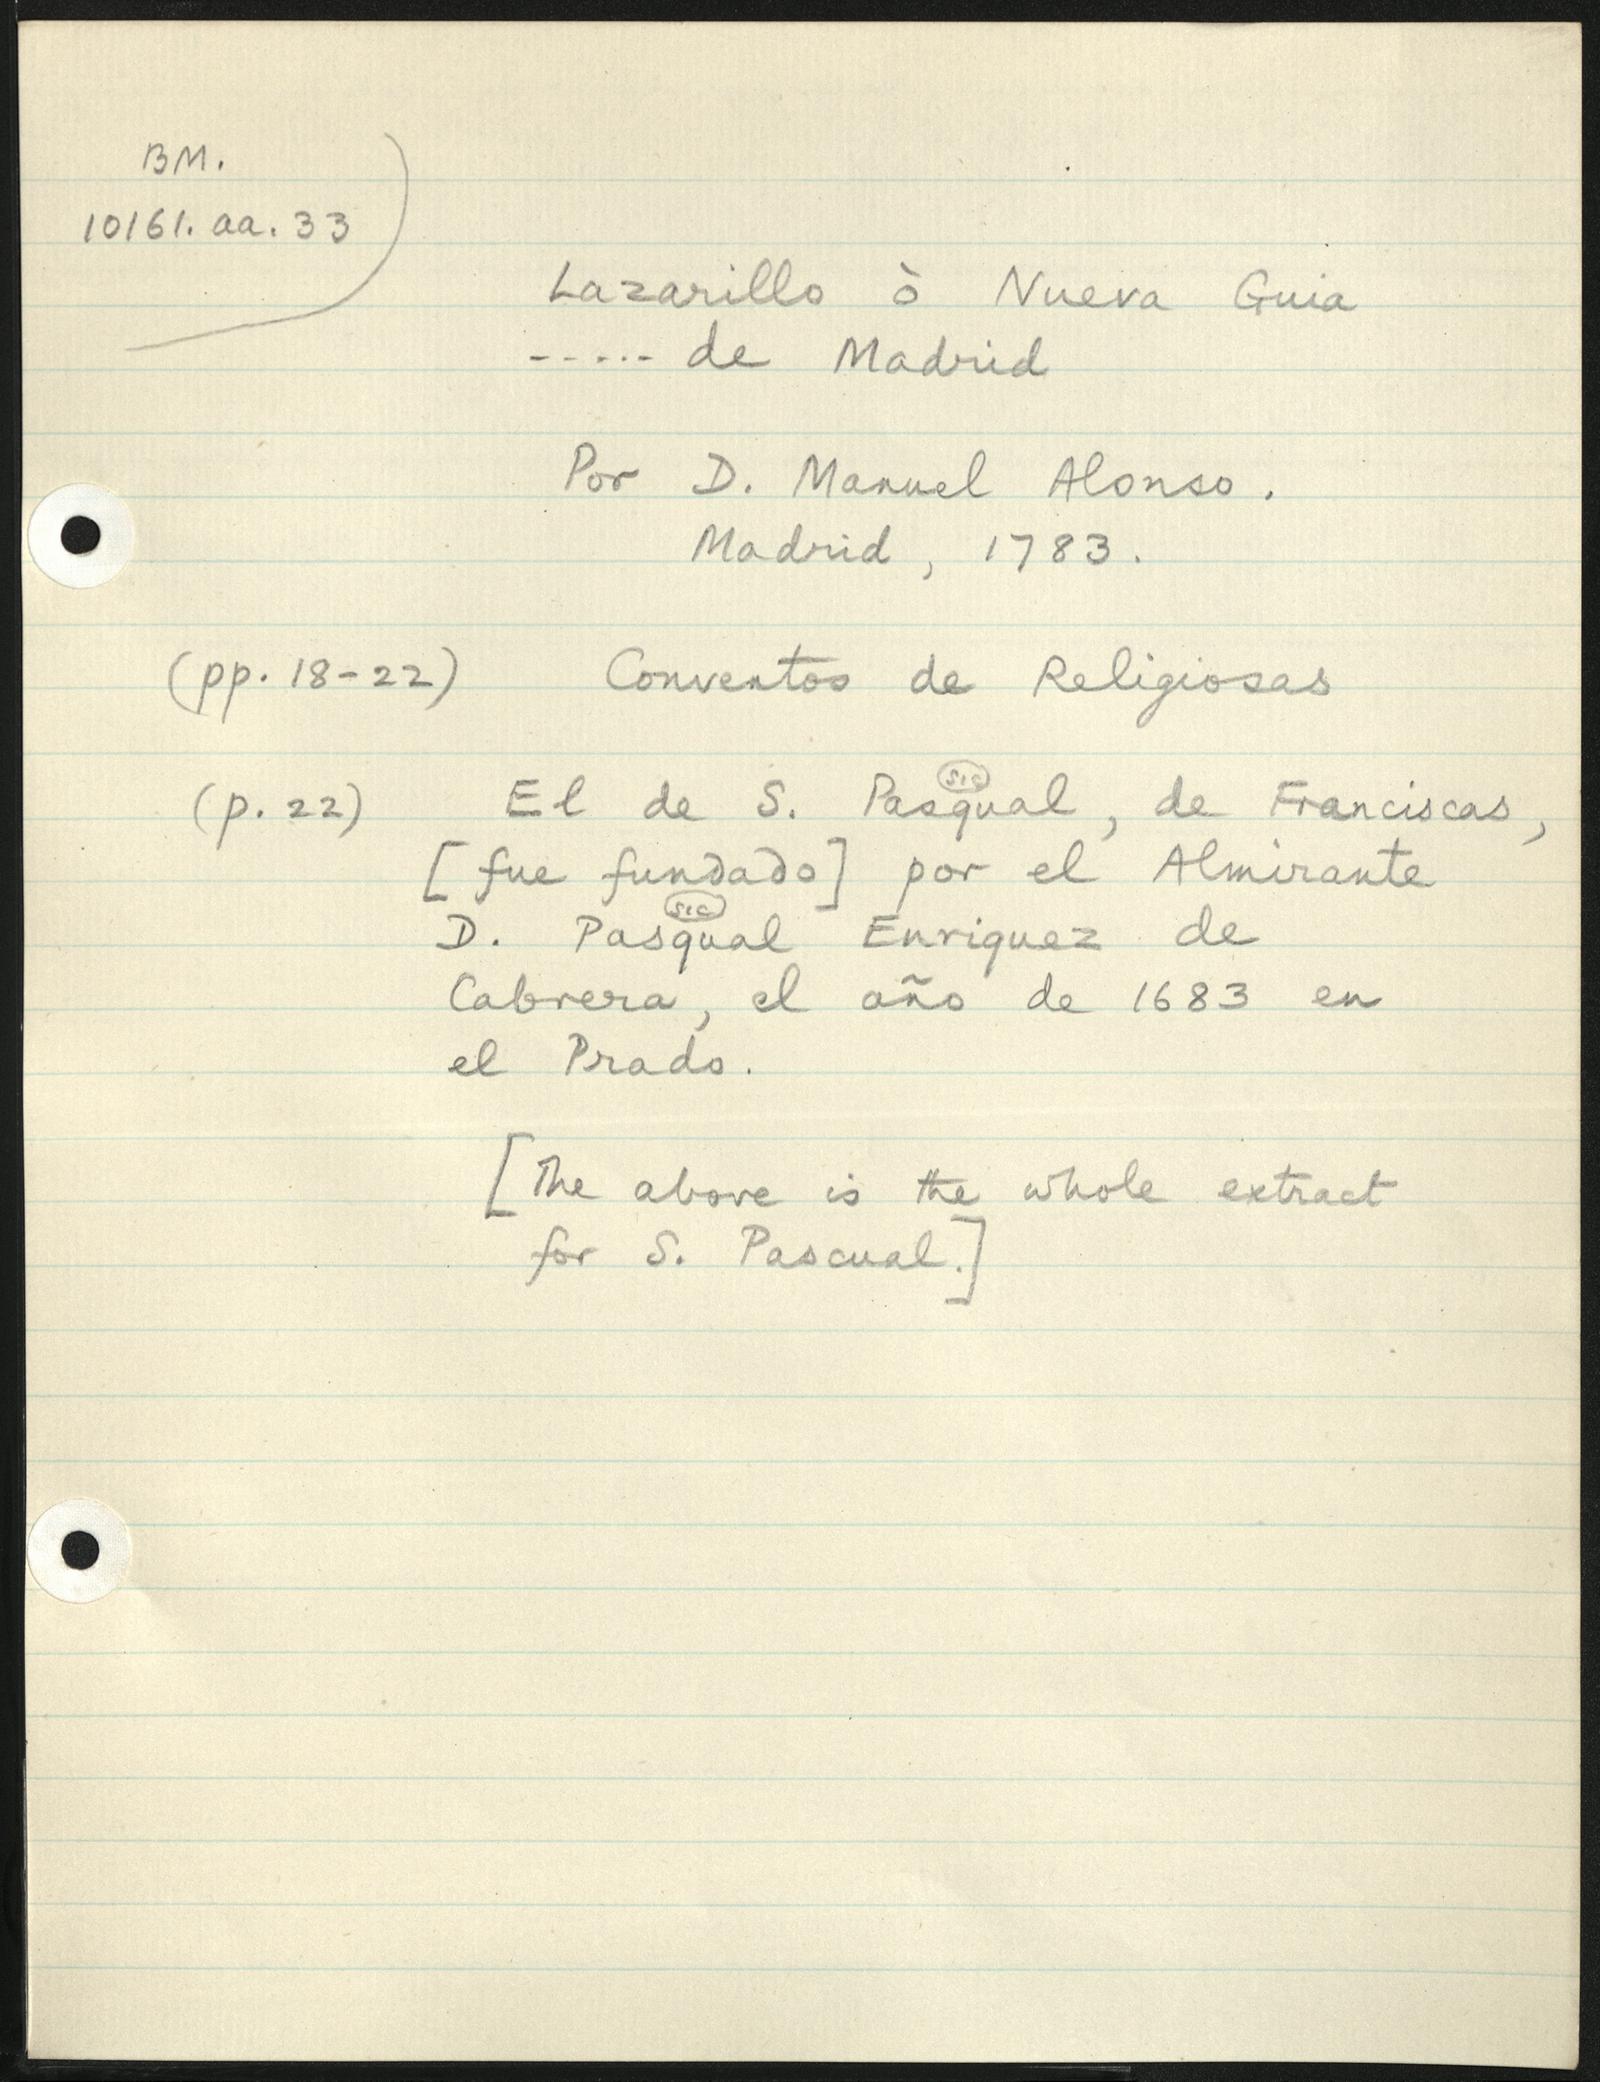 BM.
10161. aa. 33
Lazarillo ò Nueva Guia
----- de Madrid
Por D. Manuel Alonso.
Madrid, 1783.
(pp. 18-22) Conventos de Religiosas
sic
(p. 22) El de S. Pasqual, de Franciscas,
[fue fundado] por el Almirante
sic
D. Pasqual Enriquez de
Cabrera, el año de 1683 en
el Prado.
[The above is the whole extract
for S. Pascual.]